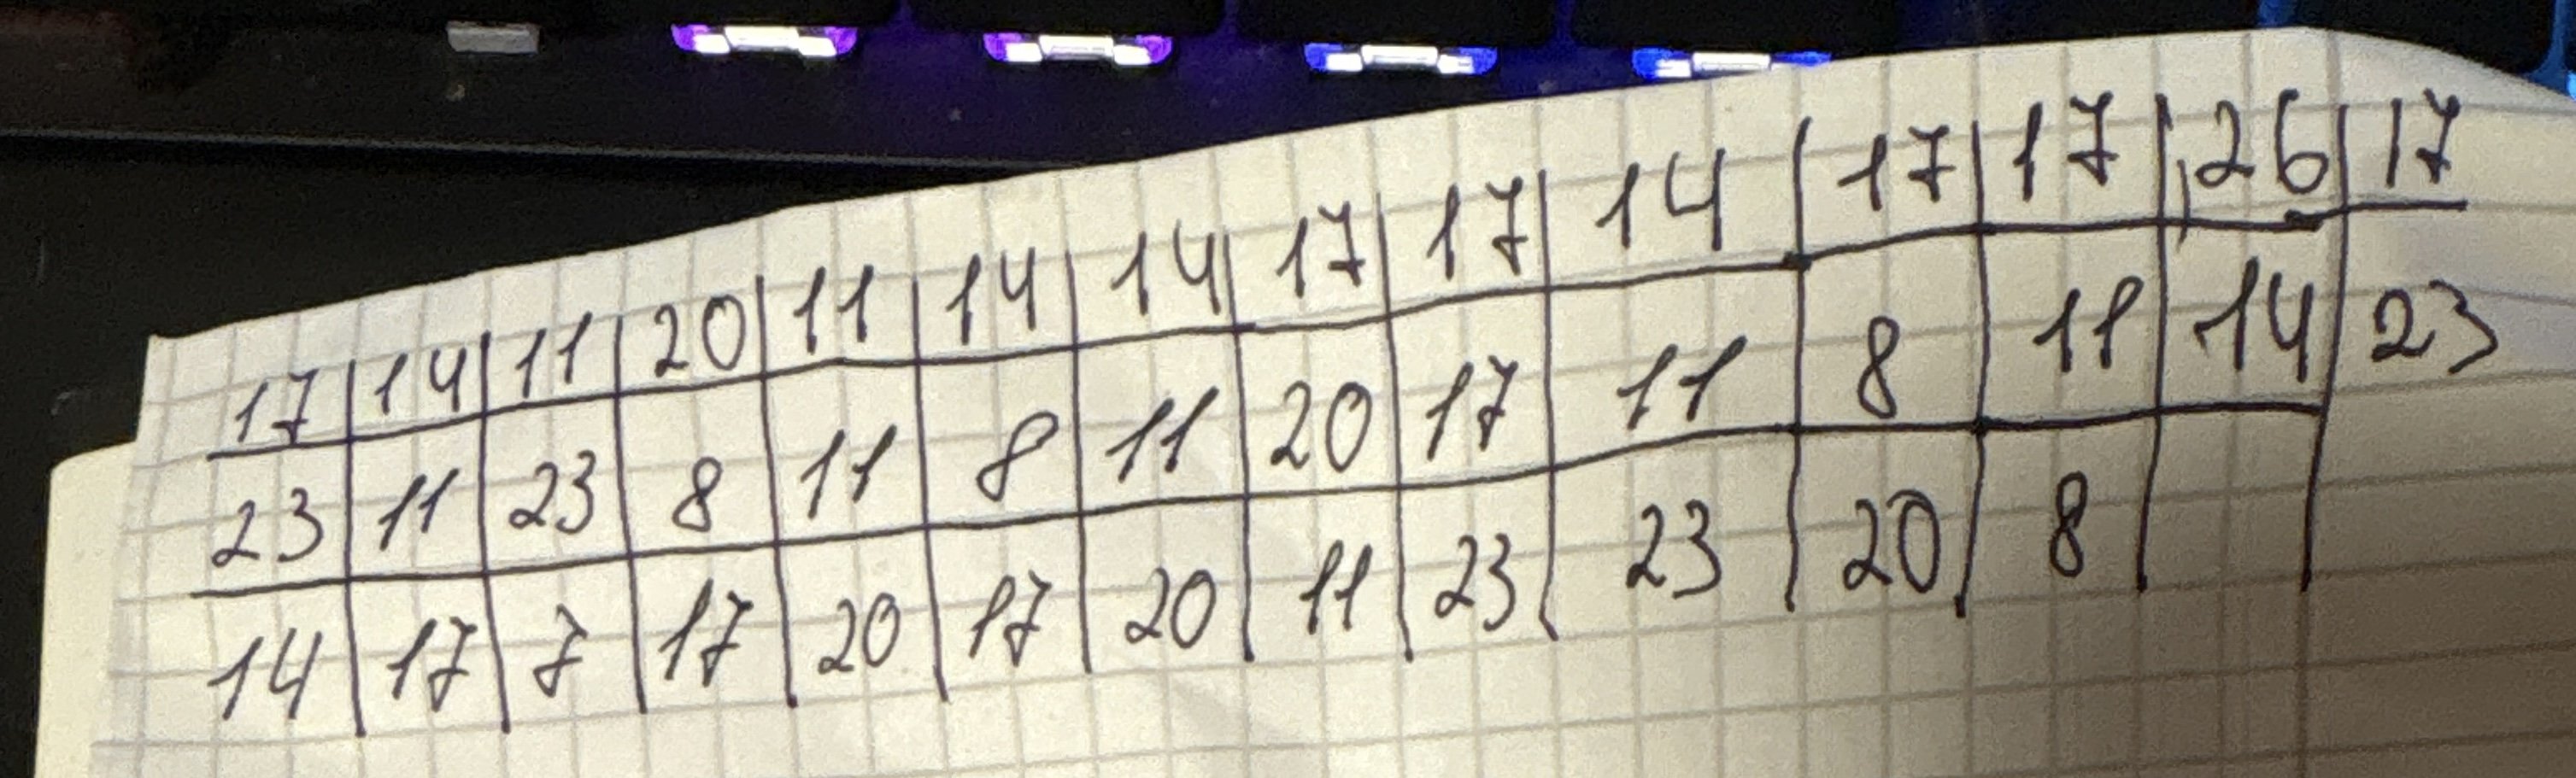 17 14 11 20 11 14 14 17 17 14 17 17 26 17
23 11 23 8 11 8 11 20 17 11 8 11 14 23
14 17 7 17 20 17 20 11 23 23 20 8